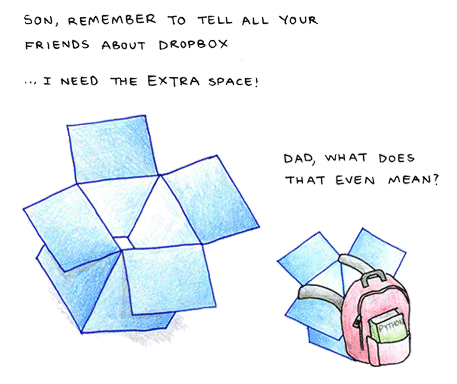 SON, REMEMBER TO TELL ALL YOUR
FRIENDS ABOUT DROPBOX
... I NEED THE EXTRA SPACE!
DAD, WHAT DOES
THAT EVEN MEAN?
PYTHON